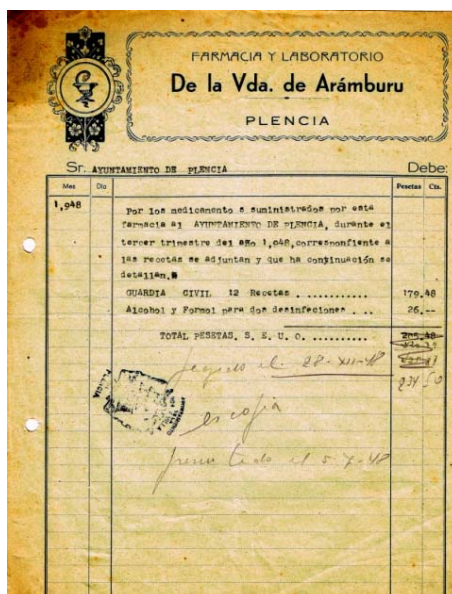 FARMACIA Y LABORATORIO
De la Vda. de Arámburu
PLENCIA
Sr. AYUNTAMIENTO DE PLENCIA Debe:
Mes Dia Pesetas Cts.
1,948
Por los medicamento s suministrados por esta
farmacia al AYUNTAMIENTO DE PLENCIA, durante el
tercer trimestre del año 1,948,correspondiente a
las recetas se adjuntan y que ha continuación se
detallan.
GUARDIA CIVIL 12 Recetas ............ 179,48
Alcohol y Formol para dos desinfeciones ... 26.--
TOTAL PESETAS. S. E. U. O. .......... 205,48
pagado el 28-XII-48
234 50
PLENCIA
es copia
el 5-X-48